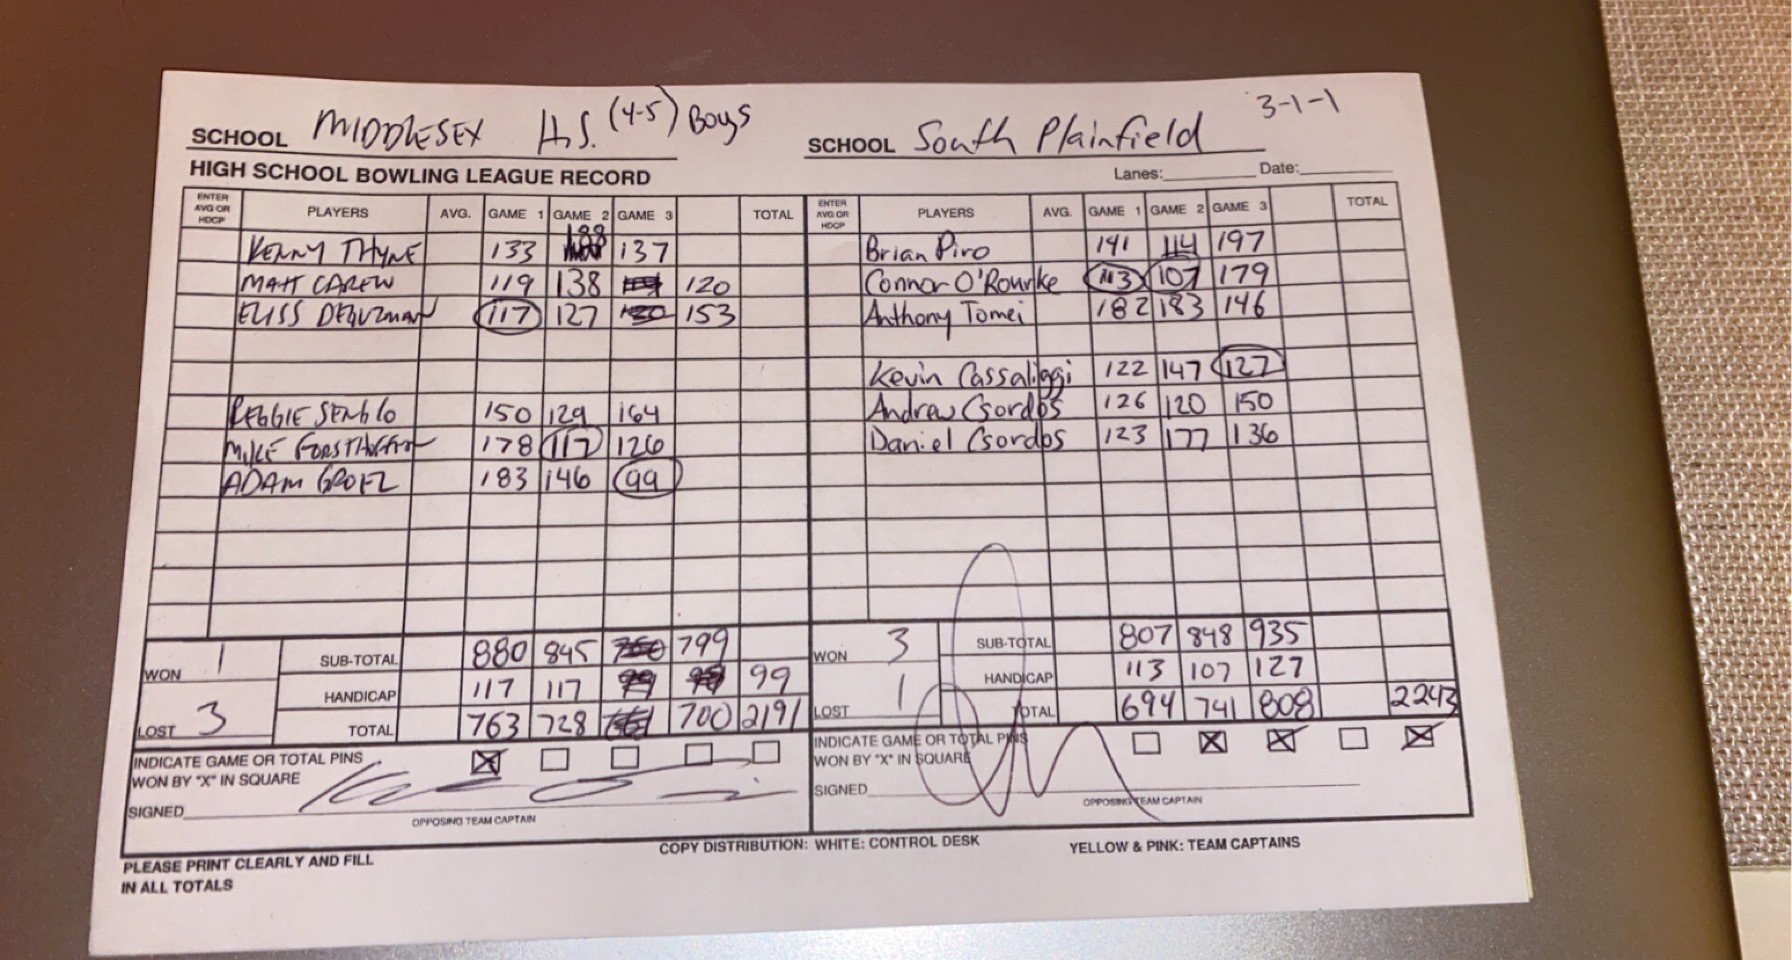 SCHOOL MIDDLESEX H.S. (4-5) Boys
SCHOOL South Plainfield 3-1-1
HIGH SCHOOL BOWLING LEAGUE RECORD
Lanes: Date:
ENTER AVG OR HDCP PLAYERS AVG. GAME 1 GAME 2 GAME 3 TOTAL
ENTER AVG OR HDCP PLAYERS AVG. GAME 1 GAME 2 GAME 3 TOTAL
KENNY THYNE 133 188 137
Brian Piro 141 114 197
MATT CAREW 119 138 120
Connor O'Rourke 113 107 179
117 127 153
Anthony Tomei 182 183 146
Kevin Cassaliggi 122 147 127
REGGIE 150 129 164
Andrew Csordos 126 120 150
MIKE 178 117 126
Daniel Csordos 123 177 136
ADAM 183 146 99
WON 1 SUB-TOTAL 880 845 799
WON 3 SUB-TOTAL 807 848 935
HANDICAP 117 117 99
HANDICAP 113 107 127
LOST 3 TOTAL 763 728 700 2191
LOST 1 TOTAL 694 741 808 2243
INDICATE GAME OR TOTAL PINS
WON BY "X" IN SQUARE X
INDICATE GAME OR TOTAL PINS X X X
WON BY "X" IN SQUARE
SIGNED
OPPOSING TEAM CAPTAIN
SIGNED
OPPOSING TEAM CAPTAIN
PLEASE PRINT CLEARLY AND FILL
IN ALL TOTALS
COPY DISTRIBUTION: WHITE: CONTROL DESK YELLOW & PINK: TEAM CAPTAINS